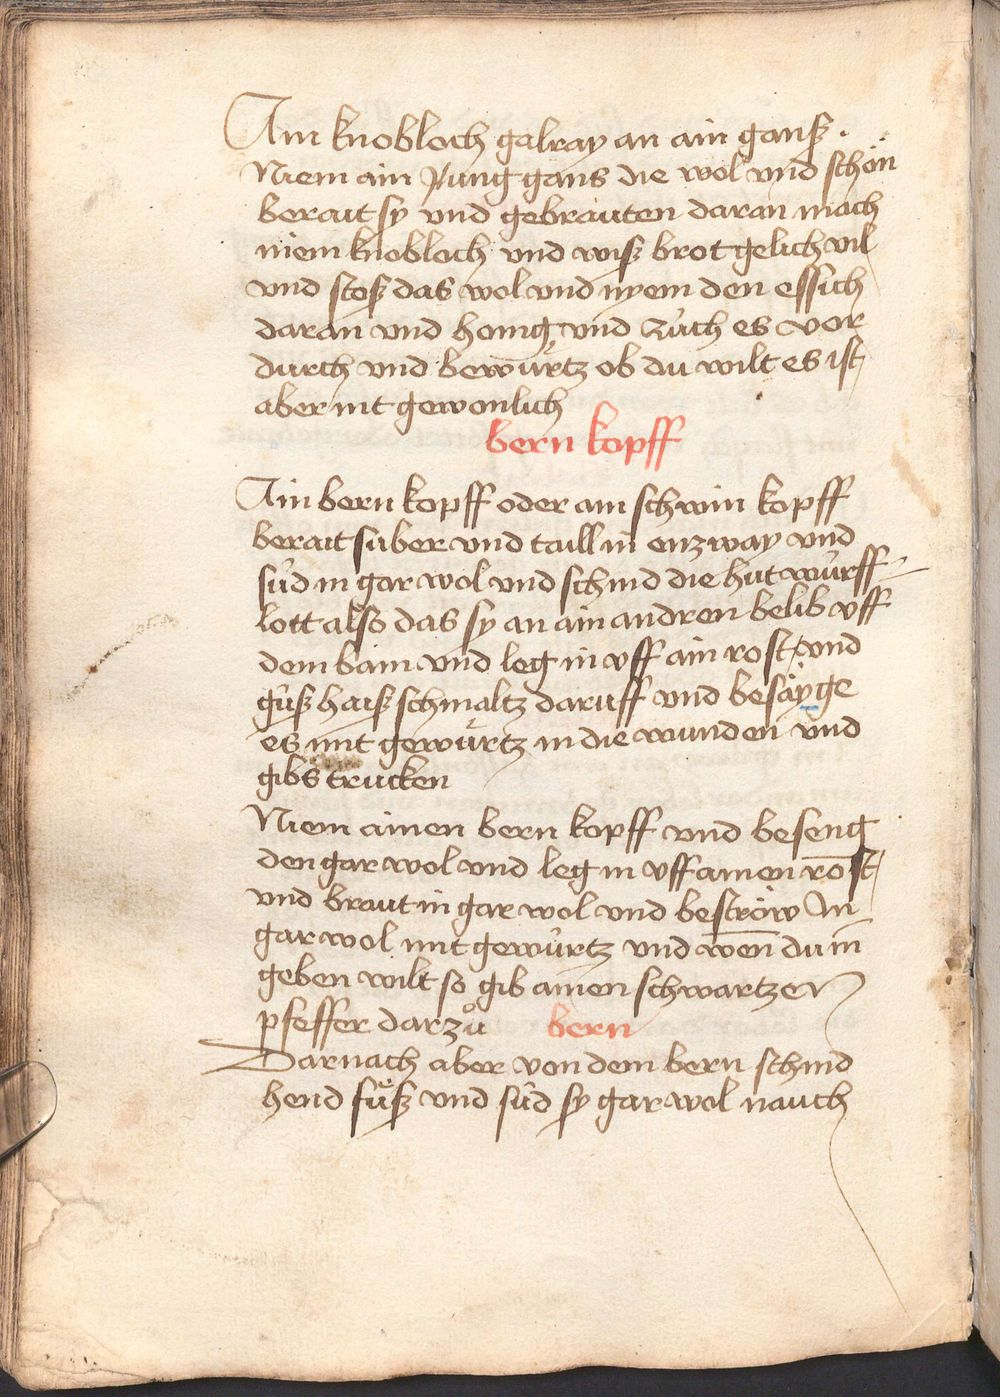 Ain knobloch galray an ain ganß .
Niem ain Jung gans die wol vnd schön
berait sy vnd gebrauten daran mach
niem knobloch vnd wiß brot gelich vil
vnd stoß das wol vnd nyem den essich
daran vnd honig vnd zúch es vor
durch vnd bewúrtz ob du wilt es ist
aber nit gewonlich
bern kopff
Ain bern kopff oder ain schwin kopff
berait suber vnd taill in enzway vnd
súd in gar wol vnd schind die hut wúrff
lott also das sy an ain andren belib vff
dem bain vnd leg in vff ain rost vnd
gúß haiß schmaltz daruff vnd besäyge
es mit gewúrtz in die wunden vnd
gibs trucken
Niem ainen bern kopff vnd beseng
den gar wol vnd leg in vff ainen rost
vnd braut in gar wol vnd beströw In
gar wol mit gewúrtz vnd wen̄ du in
geben wilt so gib ainen schwartzen
pfeffer darzů bern
Darnach aber von dem bern schind
hend fúß vnd súd sy gar wol nauch